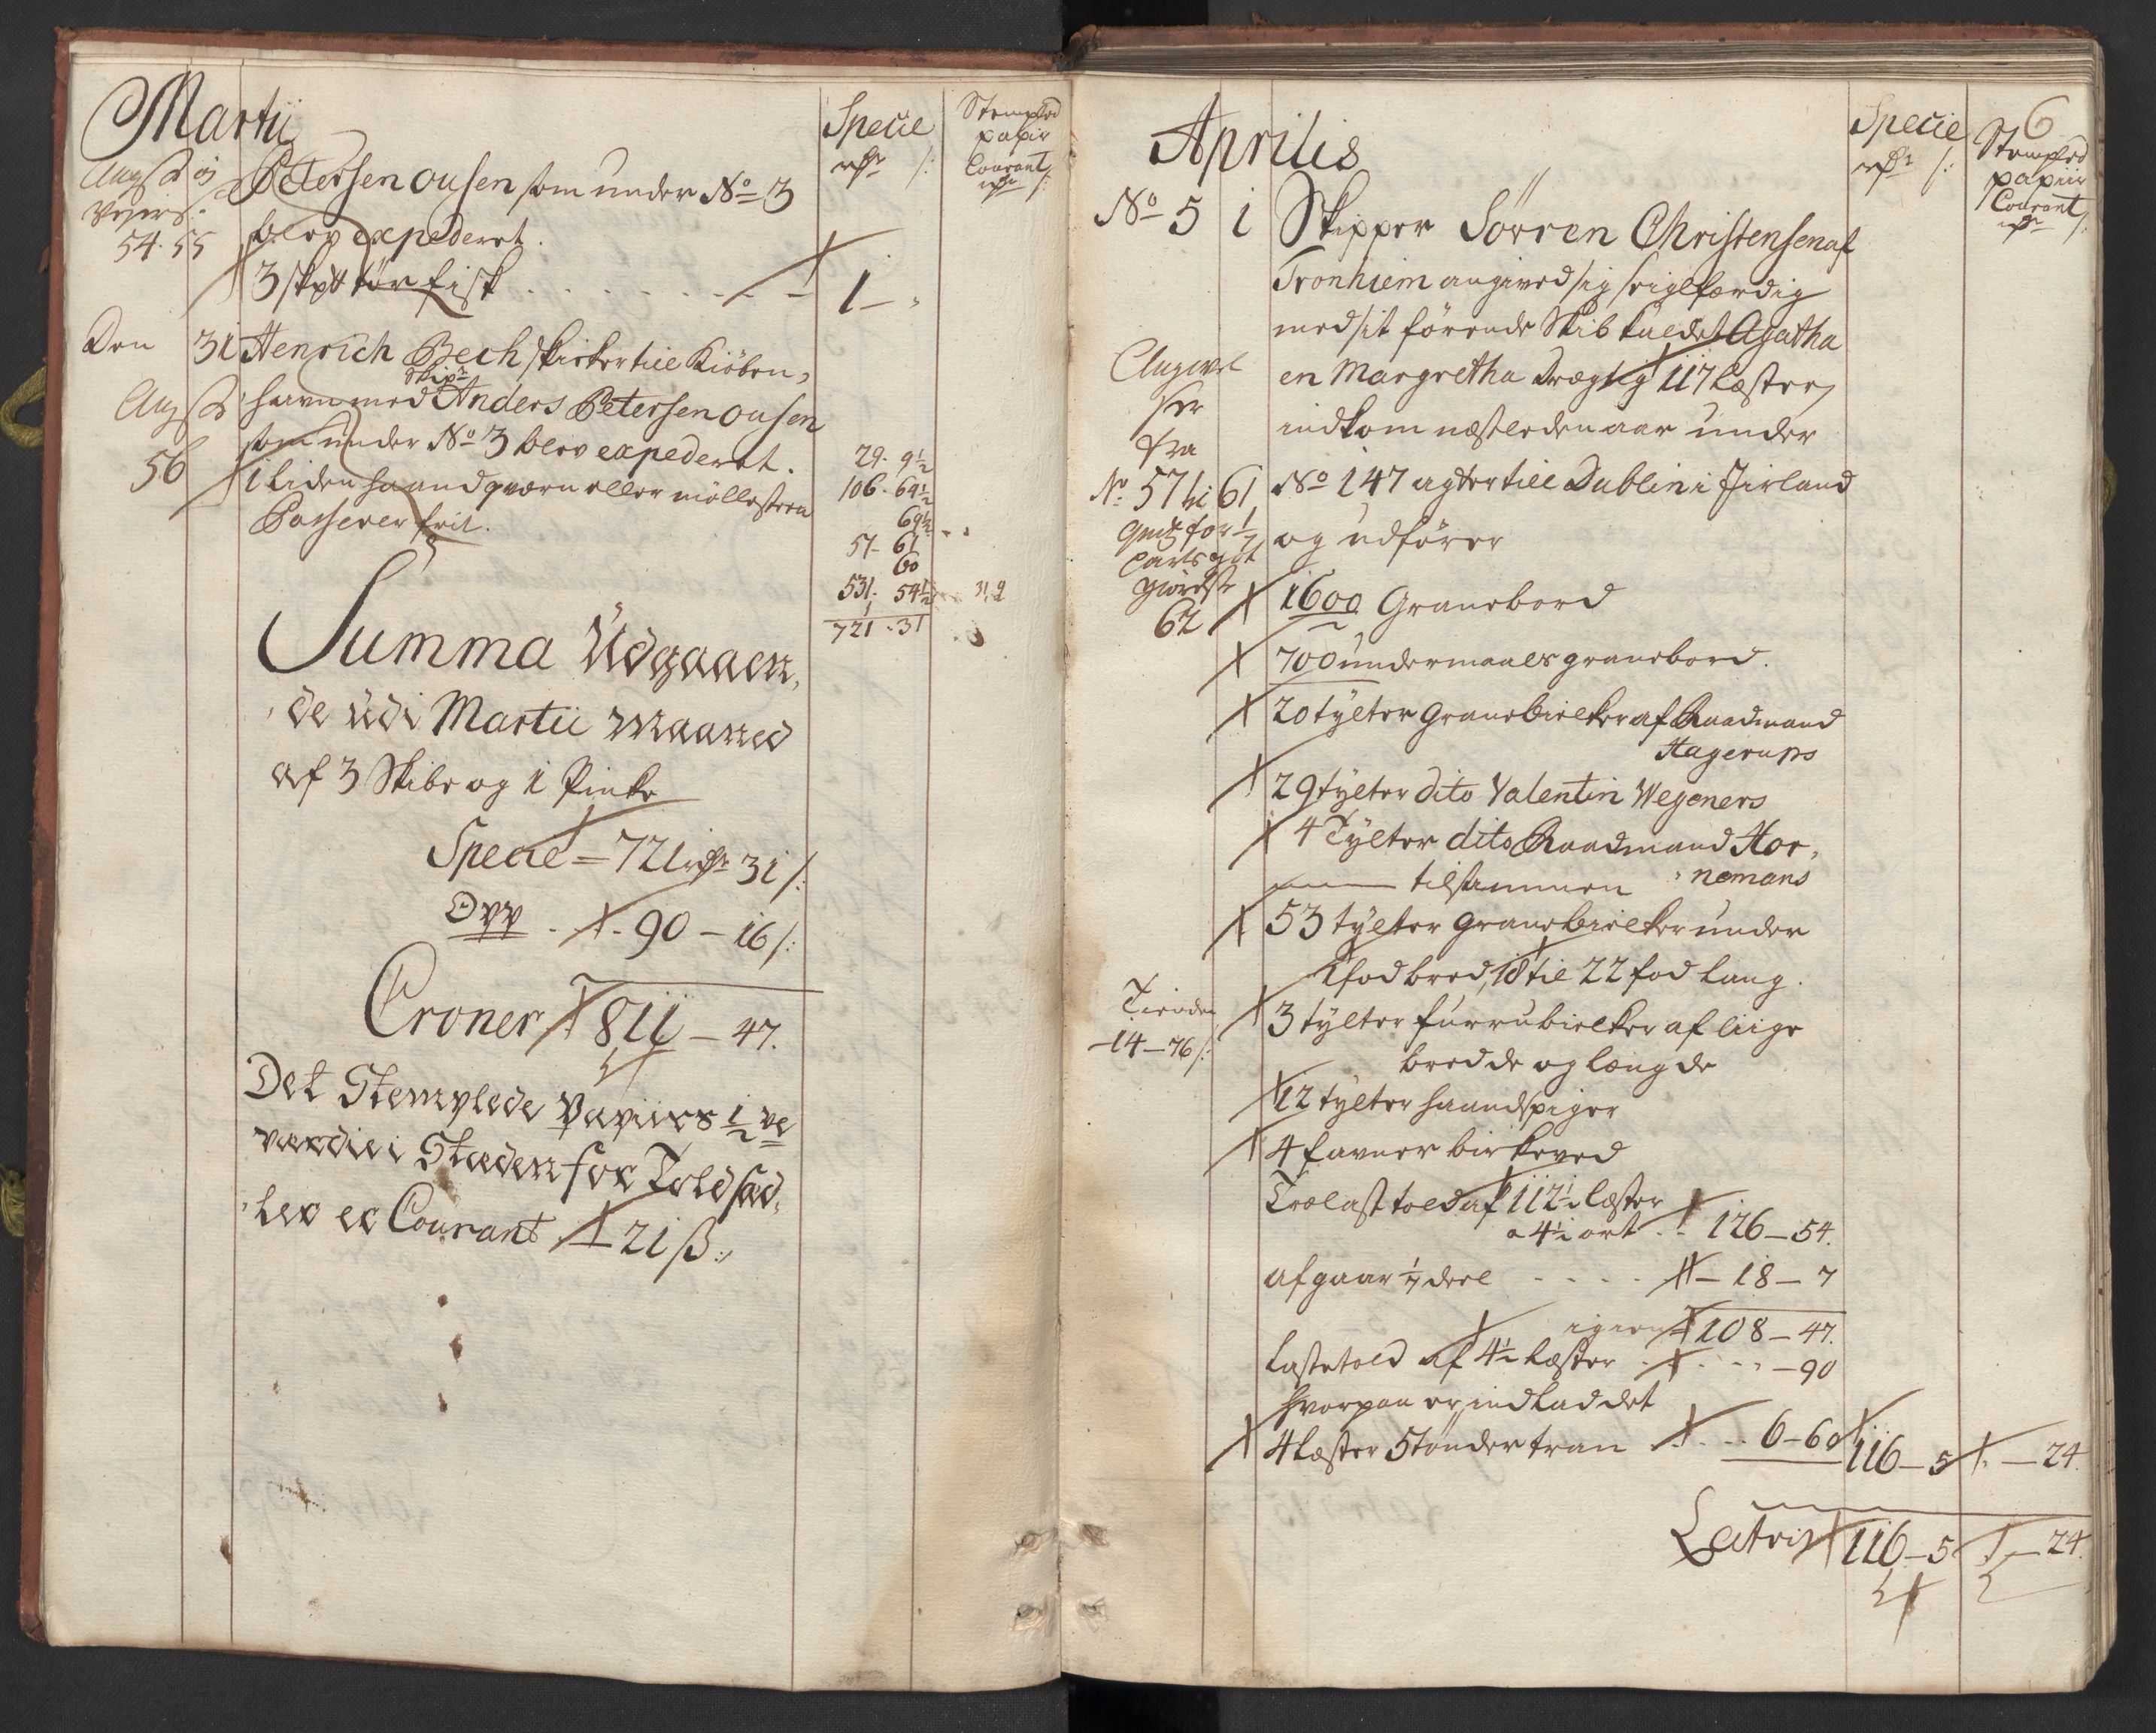 Martii
Specie
rdr ß:
Stempled
papir
Courant
rdr ß:
Petersen ousen som under No 3
54. 55
blev expederet.
3 skytt tør fisk . . . . . . . 1 -
Den 31 Henrich Bech skicker till Kiöben,
havn med Skipr Anders Petersen ousen
som under No 3 blev expederet.
56
1 liden haandqværn eller möllesteen
Passerer frit.
29. 9½
106. 69½
69½
57. 61
60
531. 54½
1
721. 31
Summa Udgaaen,
de udi Martii Maaned
af 3 Skibe og 1 Pincke
Specie = 721 rdr 31 ß:
Opp . - 90 - 16 ß:
Croner 811 - 47.
Det Stemplede Papiirs ½ ve
værdie i Stæden for Told sæd,
ler er Courant - 21 ß:
6
Aprilis
Specie
rdr ß:
Stempled
papiir
Courant
rdr ß:
No 5 1 Skipper Sörren Christensen af
Tronhiem angived sig seiglfærdig
med sit förende Skib kaldet Agatha
en Margretha drægtig 117 læster,
indkom næstleden aar under
No 147 agter till Dublin i Jirland
og udfører
Angivel
ser
fra
No 57 til 61
62
1600 Granebord
700 undermaals granebord.
20 tylter Granebielker af Raadmand
Hagerups
29 tylter dito Valentin Wegeners
4 Tylter dito Raadmand Hor,
nemans
tilsammen
53 tylter granebielker under
1 fod bred, 18 til 22 fod lang.
Tiende
-14-76 ß:
3 tylter furrubielker af liige
bredde og længde
12 tylter haandspiger
4 favner birkeved
Trælast told af 112½ læster
a 4½ ort . . 126 - 54.
afgaar 1/7 deel . . . . - 18 - 7
igien 108 - 47.
Lastetold af 4½ læster . . . . - 90
hvorpaa er indladdet
4 læster 5 tönder tran . . . 6 - 60 116 - 5 - 24.
Latris 116 - 5 - 24.